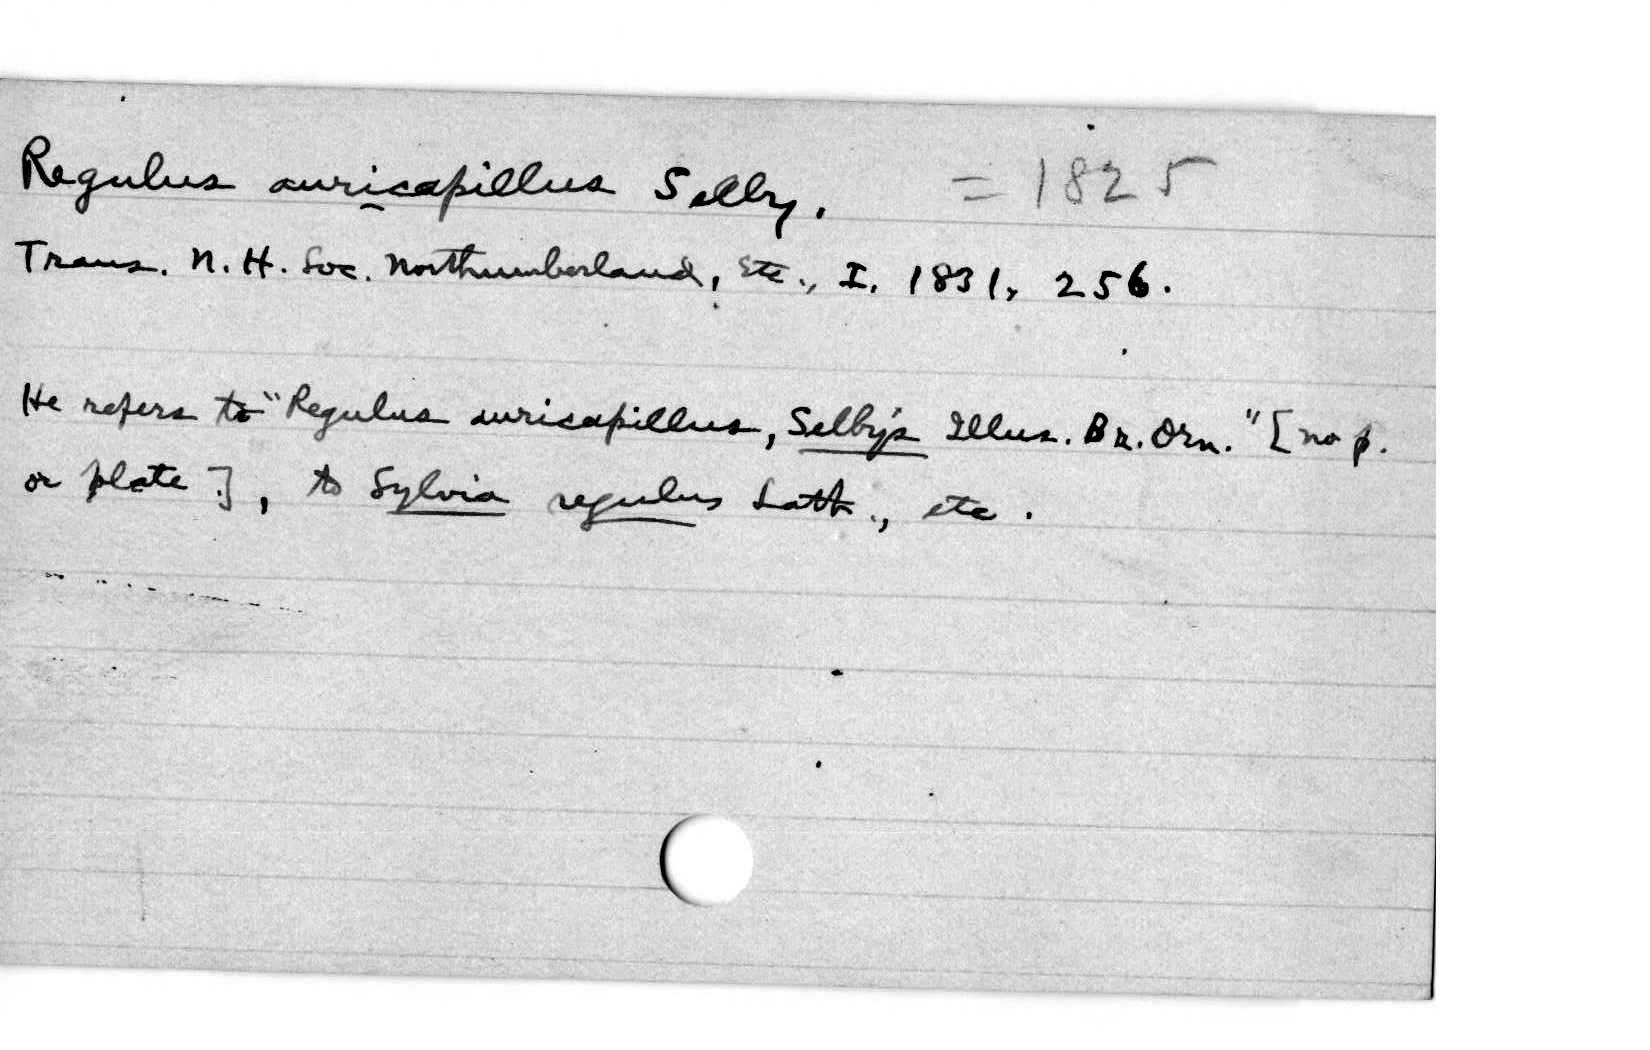 Regulus auricapillus Selby. = 1825
Trans. N. H. Soc. Northumberland, etc., I, 1831, 256.
He refers to "Regulus auricapillus, Selby's Illus. Br. Orn." [no p.
or plate], to Sylvia regulus Lath., etc.